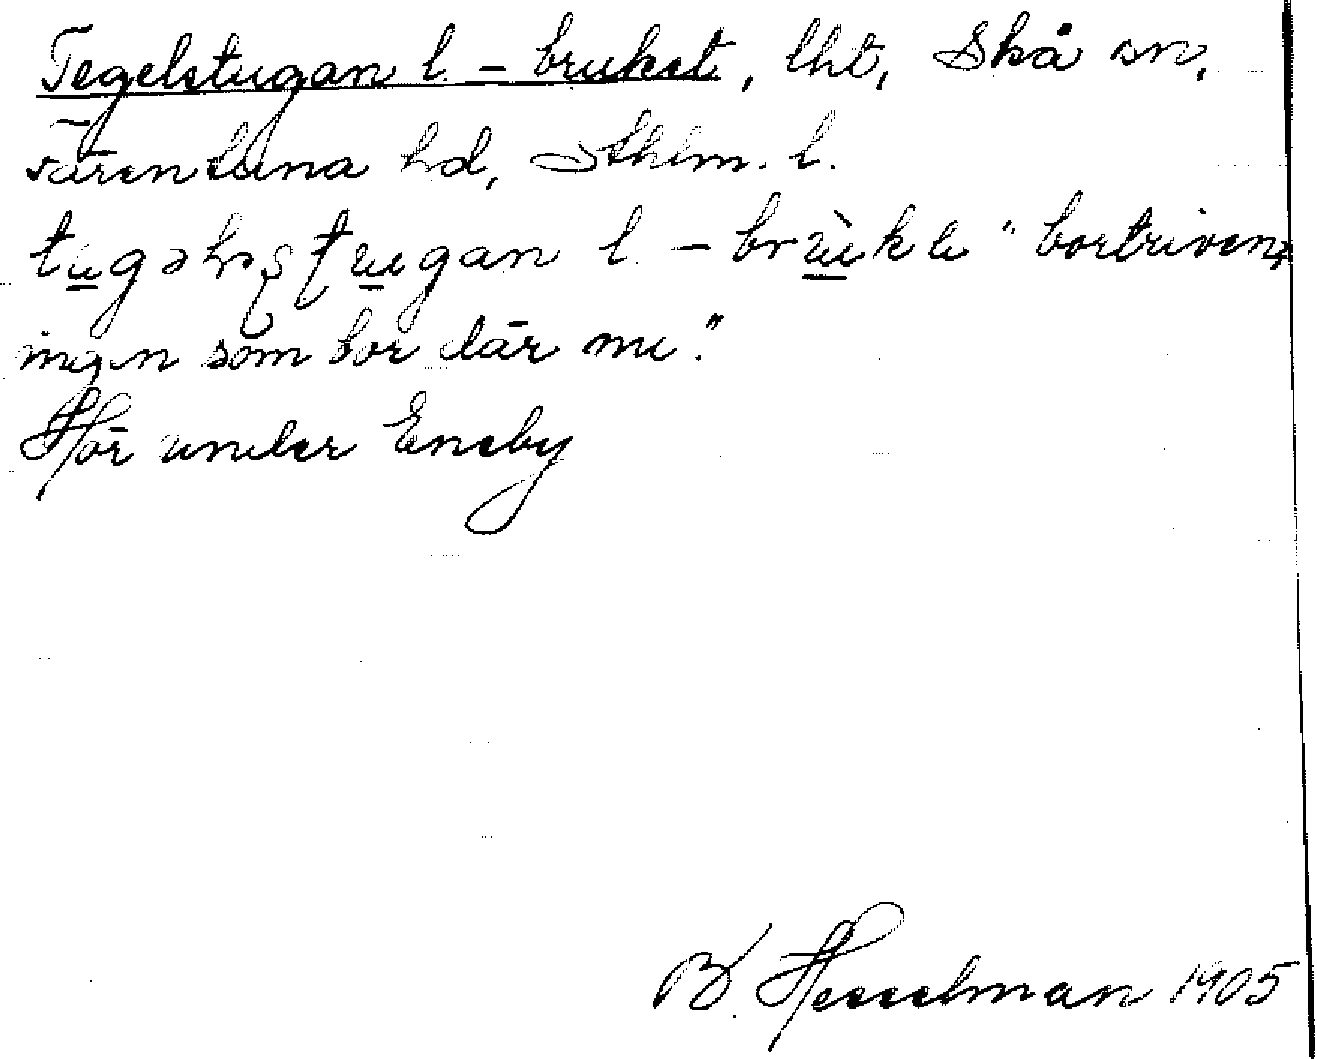 Tegelstugan l. - bruket, lht, Skå sn,
Färentuna hd, Sthlm. l.
l. - "bortriven,
ingen som bor där nu."
Hör under Eneby
B. Hesselman 1905